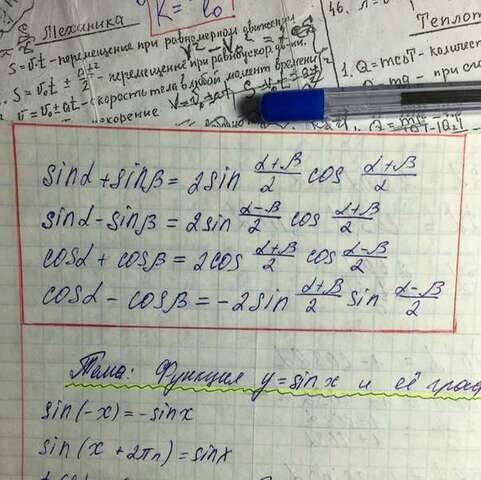 Механика
K = lo
46.
S = v.t - перемещение при равномерном движении
S = v₀t ± at²/2 - перемещение при равноускор. дв-ии.
v = v₀ ± at - скорость тела в любой момент времени
Тепло
1. Q = mcΔT - количес
при
sinα + sinβ = 2sin (α+β)/2 cos (α+β)/2
sinα - sinβ = 2sin (α-β)/2 cos (α+β)/2
cosα + cosβ = 2cos (α+β)/2 cos (α-β)/2
cosα - cosβ = -2sin (α+β)/2 sin (α-β)/2
Тема: Функция y = sin x и её граф
sin(-x) = -sinx
sin(x + 2πn) = sinx